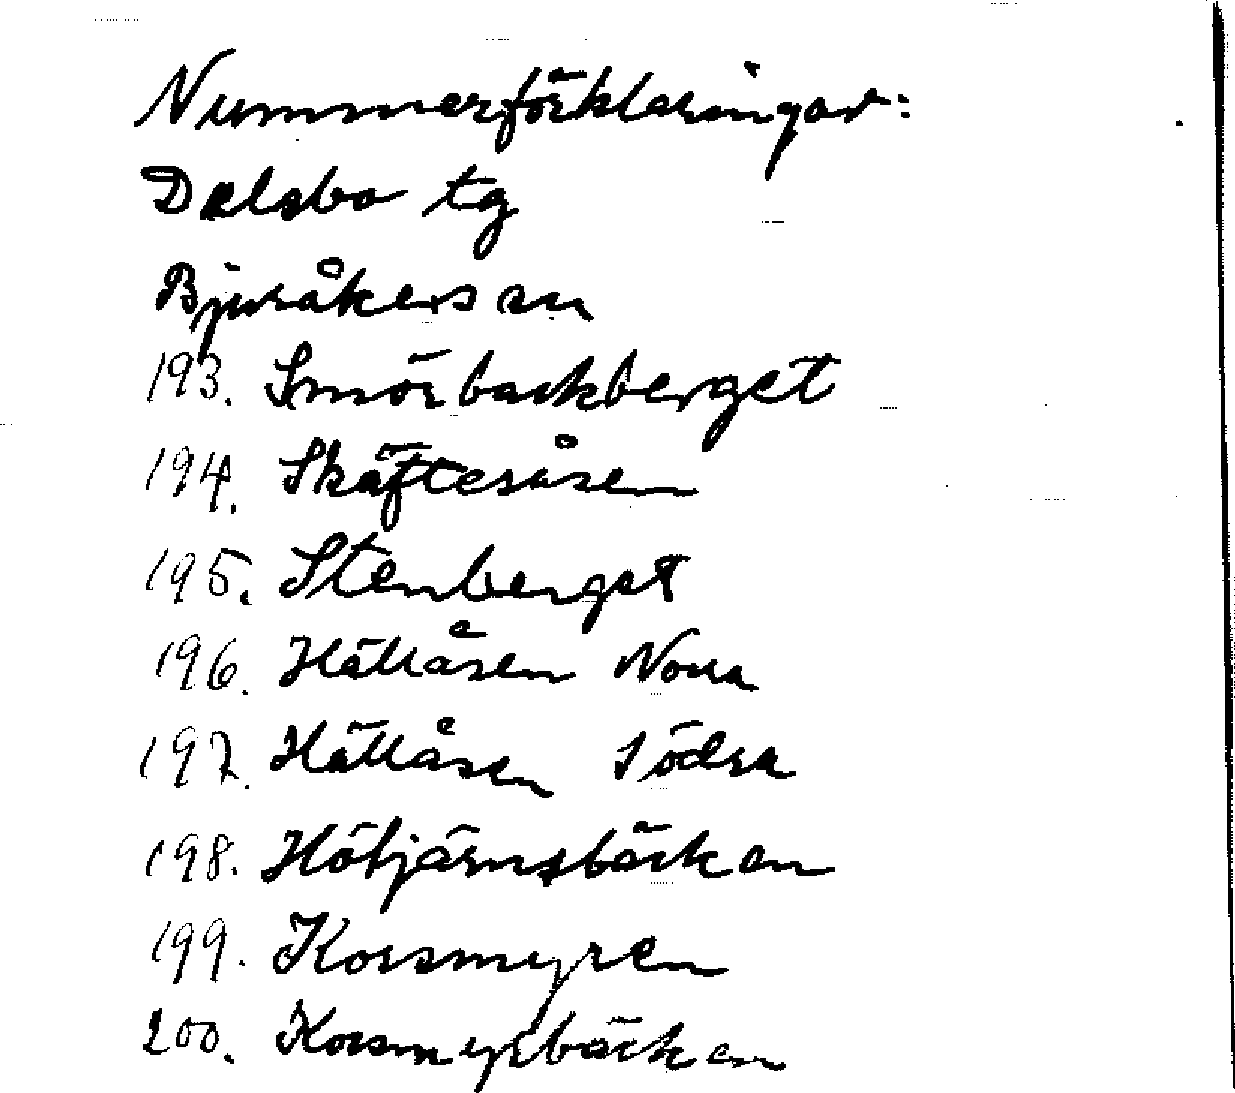 Nummerförklaringar:
Delsbo tg
Bjuråkers sn
193. Smörbackberget
194. Skäftesåsen
195. Stenberget
196. Hällåsen Norra
197. Hällåsen Södra
198. Hötjärnsbäcken
199. Korsmyren
200. Korsmyrbäcken